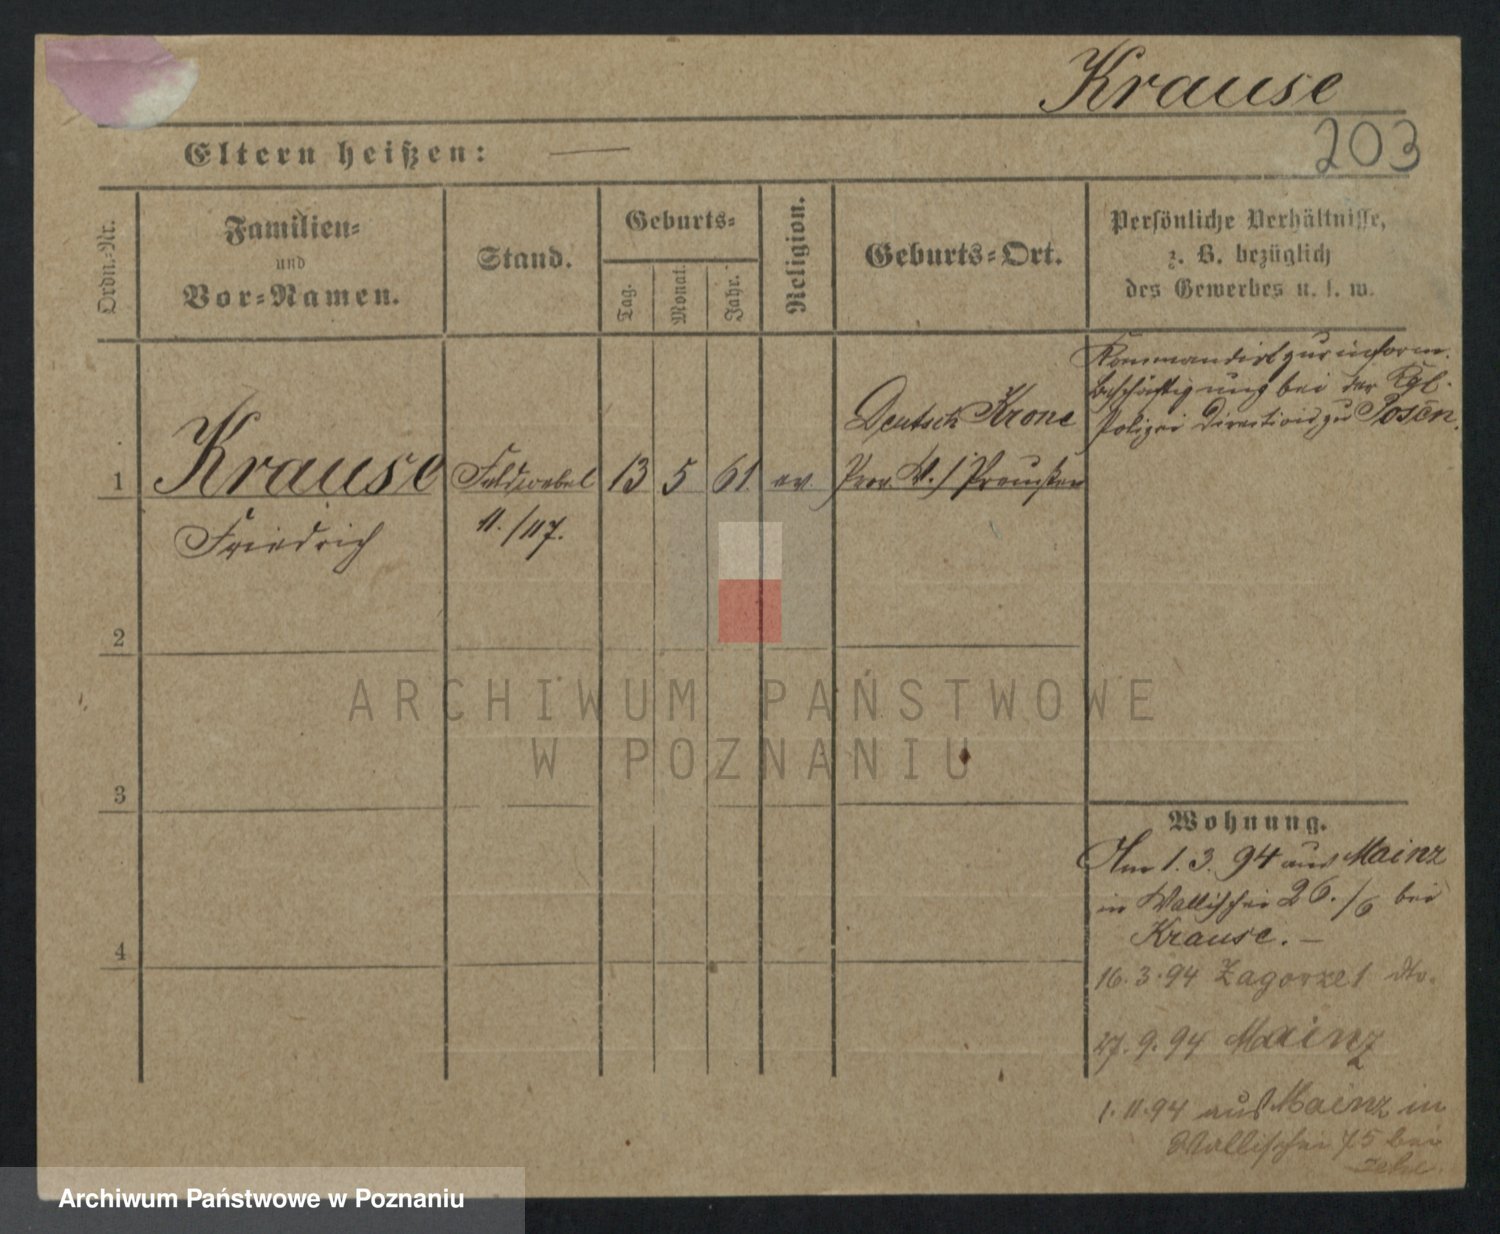 Krause
203
Eltern heißen: —
Ordn.-Nr.
Familien-
und
Vor-Namen.
Stand.
Geburts-
Tag.
Monat.
Jahr.
Religion.
Geburts-Ort.
Persönliche Verhältnisse,
z. B. bezüglich
des Gewerbes u. s. w.
Kommandirt zur inform.
Beschäftigung bei der Kgl.
Polizei Direction zu Posen.
Deutsch Krone
1 Krause Feldwebel 13 5 61. ev. Prov. W./Preußen
Friedrich 11./117.
2
3
4
Wohnung.
Am 1.3.94 aus Mainz
in Wallischei 26./6 bei
Krause. —
16.3.94 Zagorze 1
27.9.94 Mainz
1.11.94 aus Mainz in
Wallischei 75 bei
ARCHIWUM PAŃSTWOWE
W POZNANIU
Archiwum Państwowe w Poznaniu